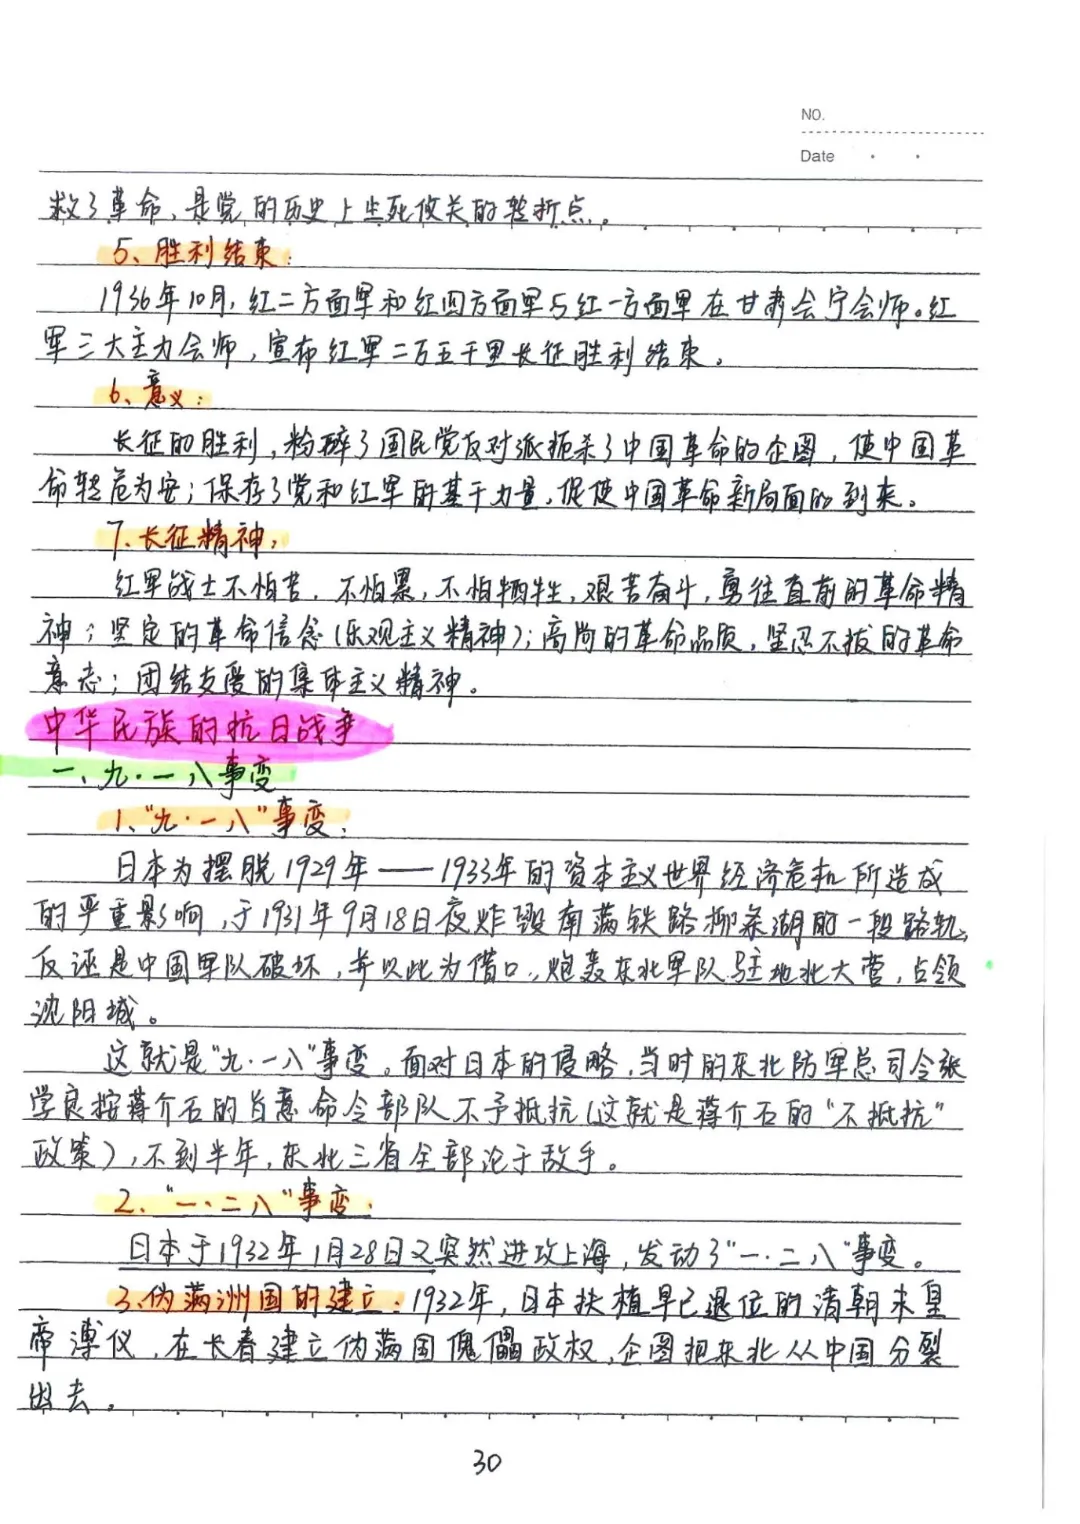 NO.
Date
救了革命,是党的历史上生死攸关的转折点。
5、胜利结束:
1936年10月,红二方面军和红四方面军与红一方面军在甘肃会宁会师。红
军三大主力会师,宣布红军二万五千里长征胜利结束。
6、意义:
长征的胜利,粉碎了国民党反对派扼杀了中国革命的企图,使中国革
命转危为安;保存了党和红军的基干力量,促使中国革命新局面的到来。
7、长征精神:
红军战士不怕苦,不怕累,不怕牺牲,艰苦奋斗,勇往直前的革命精
神;坚定的革命信念(乐观主义精神);高尚的革命品质,坚忍不拔的革命
意志;团结友爱的集体主义精神。
中华民族的抗日战争
一、九·一八事变
1、"九·一八"事变:
日本为摆脱1929年——1933年的资本主义世界经济危机所造成
的严重影响,于1931年9月18日夜炸毁南满铁路柳条湖的一段路轨,
反诬是中国军队破坏,并以此为借口,炮轰东北军队驻地北大营,占领
沈阳城。
这就是"九·一八"事变。面对日本的侵略,当时的东北防军总司令张
学良按蒋介石的旨意命令部队不予抵抗(这就是蒋介石的"不抵抗"
政策),不到半年,东北三省全部沦于敌手。
2、"一·二八"事变:
日本于1932年1月28日又突然进攻上海,发动了"一·二八"事变。
3、伪满洲国的建立:1932年,日本扶植早已退位的清朝末皇
帝溥仪,在长春建立伪满国傀儡政权,企图把东北从中国分裂
出去。
30